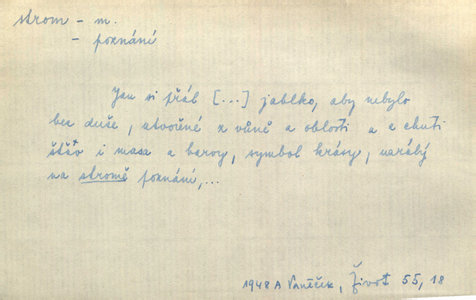 strom – m.
– poznání
Jen si přál [...] jablko, aby nebylo
bez duše, utvořené z vůně a oblosti a z chuti
šťáv i masa a barvy, symbol krásy, uzrálý
na stromě poznání,...
1948 A Vaněček, Život 55, 18